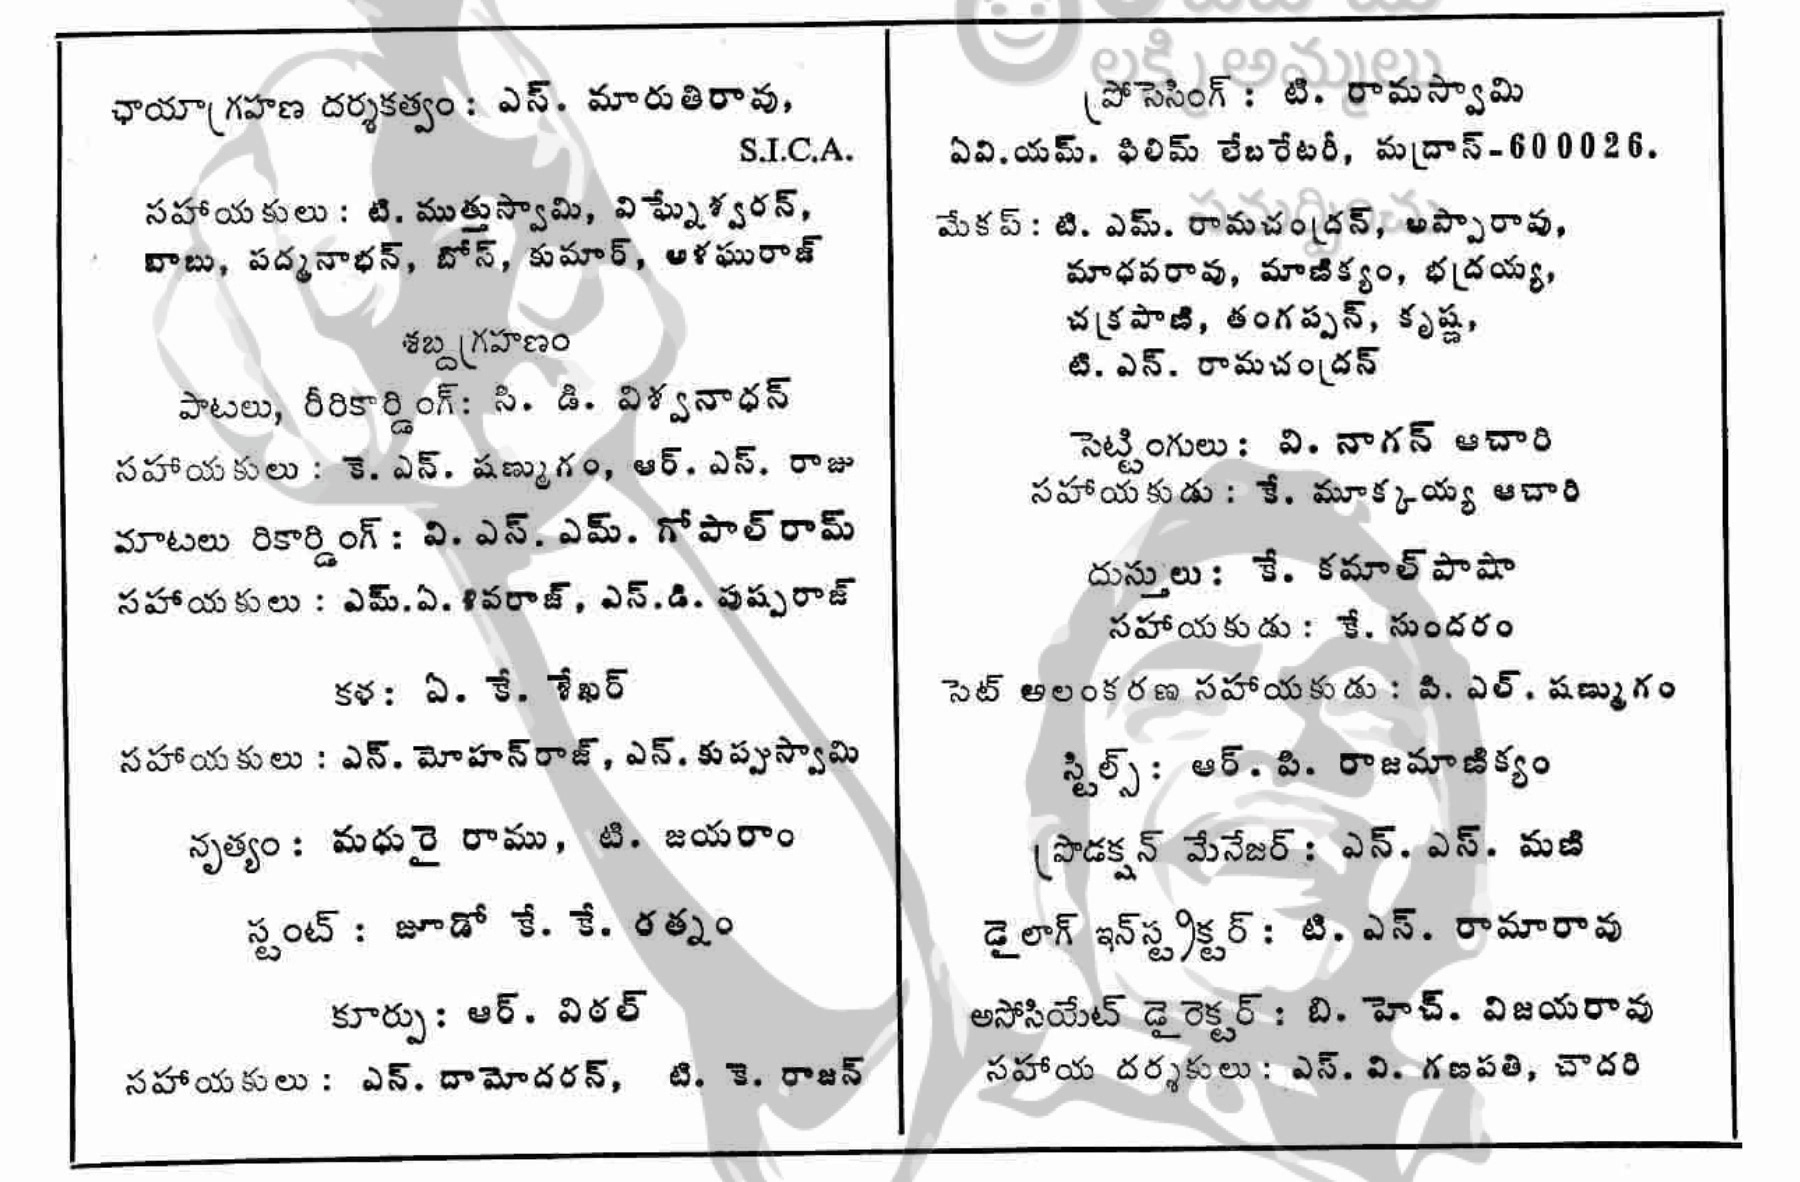 ఛాయాగ్రహణ దర్శకత్వం: ఎస్. మారుతిరావు,
S.I.C.A.
సహాయకులు: టి. ముత్తుస్వామి, విఘ్నేశ్వరన్,
బాబు, పద్మనాభన్, బోస్, కుమార్, ఆళఘురాజ్
శబ్దగ్రహణం
పాటలు, రీరికార్డింగ్: సి. డి. విశ్వనాధన్
సహాయకులు: కె. ఎన్. షణ్ముగం, ఆర్. ఎస్. రాజు
మాటలు రికార్డింగ్: వి. ఎస్. ఎమ్. గోపాల్ రామ్
సహాయకులు: ఎమ్.ఏ. శివరాజ్, ఎస్.డి. పుష్పరాజ్
కళ: ఏ. కే. శేఖర్
సహాయకులు: ఎన్. మోహన్‌రాజ్, ఎన్. కుప్పుస్వామి
నృత్యం: మధురై రాము, టి. జయరాం
స్టంట్: జూడో కే. కే. రత్నం
కూర్పు: ఆర్. విఠల్
సహాయకులు: ఎన్. దామోదరన్, టి. కె. రాజన్
లక్కీ అమ్మలు
ప్రోసెసింగ్: టి. రామస్వామి
ఏవి.యమ్. ఫిలిమ్ లేబరేటరీ, మద్రాస్-600026.
సమర్పించు
మేకప్: టి. ఎమ్. రామచంద్రన్, అప్పారావు,
మాధవరావు, మాణిక్యం, భద్రయ్య,
చక్రపాణి, తంగప్పన్, కృష్ణ,
టి. ఎన్. రామచంద్రన్
సెట్టింగులు: వి. నాగన్ ఆచారి
సహాయకుడు: కే. మూక్కయ్య ఆచారి
దుస్తులు: కే. కమాల్ పాషా
సహాయకుడు: కే. సుందరం
సెట్ అలంకరణ సహాయకుడు: పి. ఎల్. షణ్ముగం
స్టిల్స్: ఆర్. పి. రాజమాణిక్యం
ప్రొడక్షన్ మేనేజర్: ఎన్. ఎస్. మణి
డైలాగ్ ఇన్‌స్ట్రక్టర్: టి. ఎస్. రామారావు
అసోసియేట్ డైరెక్టర్: బి. హెచ్. విజయరావు
సహాయ దర్శకులు: ఎస్. వి. గణపతి, చౌదరి